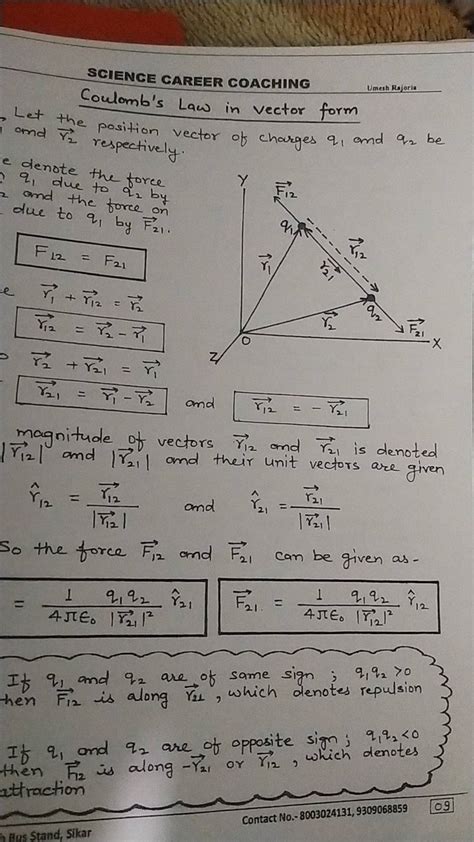 SCIENCE CAREER COACHING
Umesh Rajoria
Coulomb's Law in vector form
Let the position vector of charges q₁ and q₂ be
and r⃗₂ respectively.
denote the force
q₁ due to q₂ by
and the force on
due to q₁ by F⃗₂₁.
F₁₂ = F₂₁
r⃗₁ + r⃗₁₂ = r⃗₂
r⃗₁₂ = r⃗₂ - r⃗₁
r⃗₂ + r⃗₂₁ = r⃗₁
r⃗₂₁ = r⃗₁ - r⃗₂ and r⃗₁₂ = - r⃗₂₁
Y
F⃗₁₂
q₁
r⃗₁₂
r⃗₂₁
r⃗₁
q₂
r⃗₂
F⃗₂₁
Z
O
X
magnitude of vectors r⃗₁₂ and r⃗₂₁ is denoted
|r⃗₁₂| and |r⃗₂₁| and their unit vectors are given
r̂₁₂ = r⃗₁₂ / |r⃗₁₂| and r̂₂₁ = r⃗₂₁ / |r⃗₂₁|
So the force F⃗₁₂ and F⃗₂₁ can be given as-
= 1/4πε₀ q₁q₂/|r⃗₂₁|² r̂₂₁ F⃗₂₁ = 1/4πε₀ q₁q₂/|r⃗₁₂|² r̂₁₂
If q₁ and q₂ are of same sign ; q₁q₂ >0
then F⃗₁₂ is along r⃗₂₁ , which denotes repulsion
If q₁ and q₂ are of opposite sign; q₁q₂<0
then F⃗₁₂ is along -r⃗₂₁ or r⃗₁₂ , which denotes
attraction
Bus Stand, Sikar
Contact No.- 8003024131, 9309068859
09